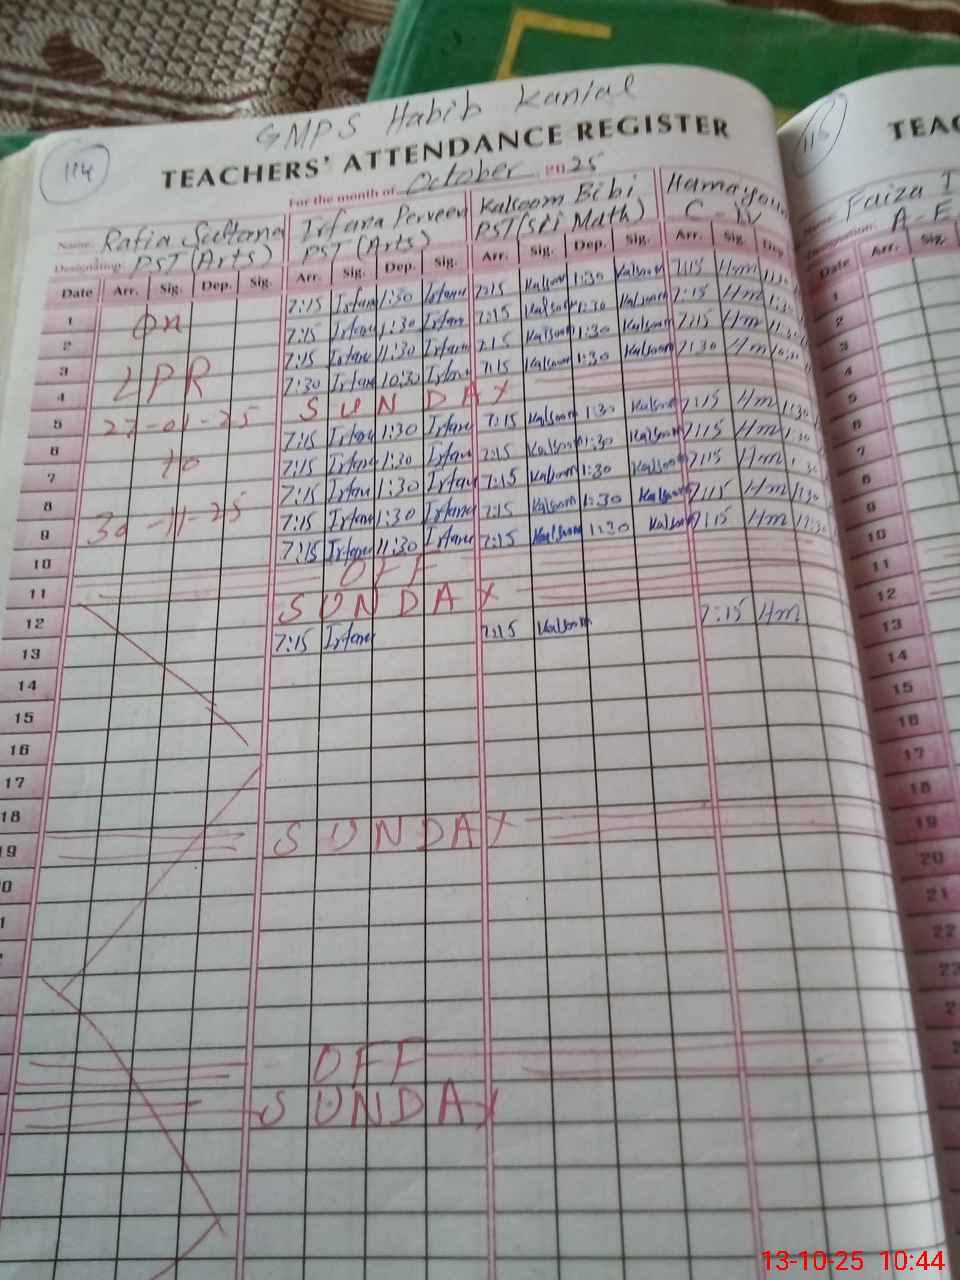 GMPS Habib Kanial
114
TEACHERS' ATTENDANCE REGISTER
For the month of October 2025
Name: Rafia Sultana Irfana Perveen Kalsoom Bibi Hamayoun
Designation: PST (Arts) PST (Arts) PST (Sci Math) C-IV
Date Arr. Sig. Dep. Sig. Arr. Sig. Dep. Sig. Arr. Sig. Dep. Sig. Arr. Sig. Dep.
1 On 7:15 Irfana 1:30 Irfana 7:15 Kalsoom 1:30 Kalsoom 7:15 Hm 1:30
2 7:15 Irfana 1:30 Irfana 7:15 Kalsoom 1:30 Kalsoom 7:15 Hm 1:30
3 LPR 7:15 Irfana 11:30 Irfana 7:15 Kalsoom 1:30 Kalsoom 7:15 Hm 11:30
4 7:30 Irfana 10:30 Irfana 7:15 Kalsoom 1:30 Kalsoom 7:30 Hm 10:30
5 27-01-25 SUNDAY
6 to 7:15 Irfana 1:30 Irfana 7:15 Kalsoom 1:30 Kalsoom 7:15 Hm 1:30
7 7:15 Irfana 1:30 Irfana 7:15 Kalsoom 1:30 Kalsoom 7:15 Hm 1:30
8 7:15 Irfana 1:30 Irfana 7:15 Kalsoom 1:30 Kalsoom 7:15 Hm 1:30
9 30-11-25 7:15 Irfana 1:30 Irfana 7:15 Kalsoom 1:30 Kalsoom 7:15 Hm 1:30
10 7:15 Irfana 11:30 Irfana 7:15 Kalsoom 1:30 Kalsoom 7:15 Hm 11:30
11 OFF
12 SUNDAY
13 7:15 Irfana 7:15 Kalsoom 7:15 Hm
14
15
16
17
18
19 SUNDAY
OFF
SUNDAY
115
TEAC
Name: Faiza
Designation: A-E
Date Arr. Sig.
1
2
3
4
5
6
7
8
9
10
11
12
13
14
15
16
17
18
19
20
21
22
23
13-10-25 10:44